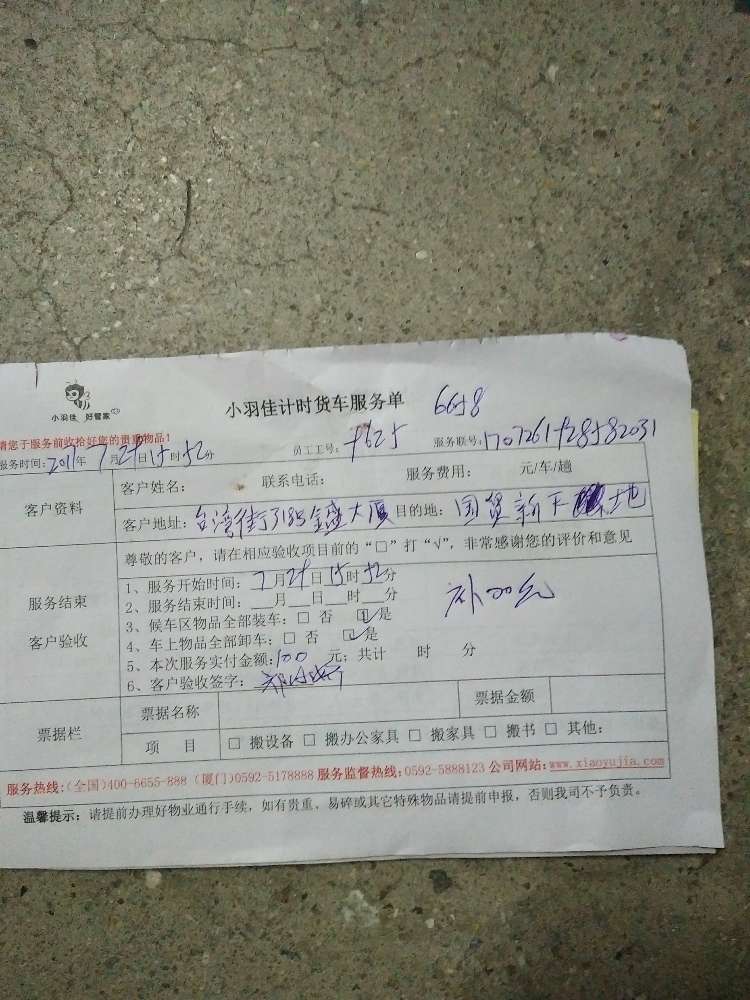 小羽佳 好管家
小羽佳计时货车服务单 6658
请您于服务前收拾好您的贵重物品!
服务时间: 2017年7月29日15时52分 员工工号: 服务联号:
客户资料
客户姓名: 联系电话: 服务费用: 元/车/趟
客户地址: 台湾街 金盛大厦 目的地: 国贸新天地
服务结束
客户验收
尊敬的客户,请在相应验收项目前的“□”打“√”,非常感谢您的评价和意见
1、服务开始时间: 7月29日15时52分
2、服务结束时间: 月 日 时 分
3、候车区物品全部装车: □ 否 ☑是
4、车上物品全部卸车: □ 否 ☑是
5、本次服务实付金额: 100 元; 共计 时 分
6、客户验收签字:
票据栏
票据名称 票据金额
项 目 □ 搬设备 □ 搬办公家具 □ 搬家具 □ 搬书 □ 其他:
服务热线:(全国)400-6655-888 (厦门)0592-5178888 服务监督热线:0592-5888123 公司网站: www.xiaoyujia.com
温馨提示: 请提前办理好物业通行手续,如有贵重、易碎或其它特殊物品请提前申报,否则我司不予负责。